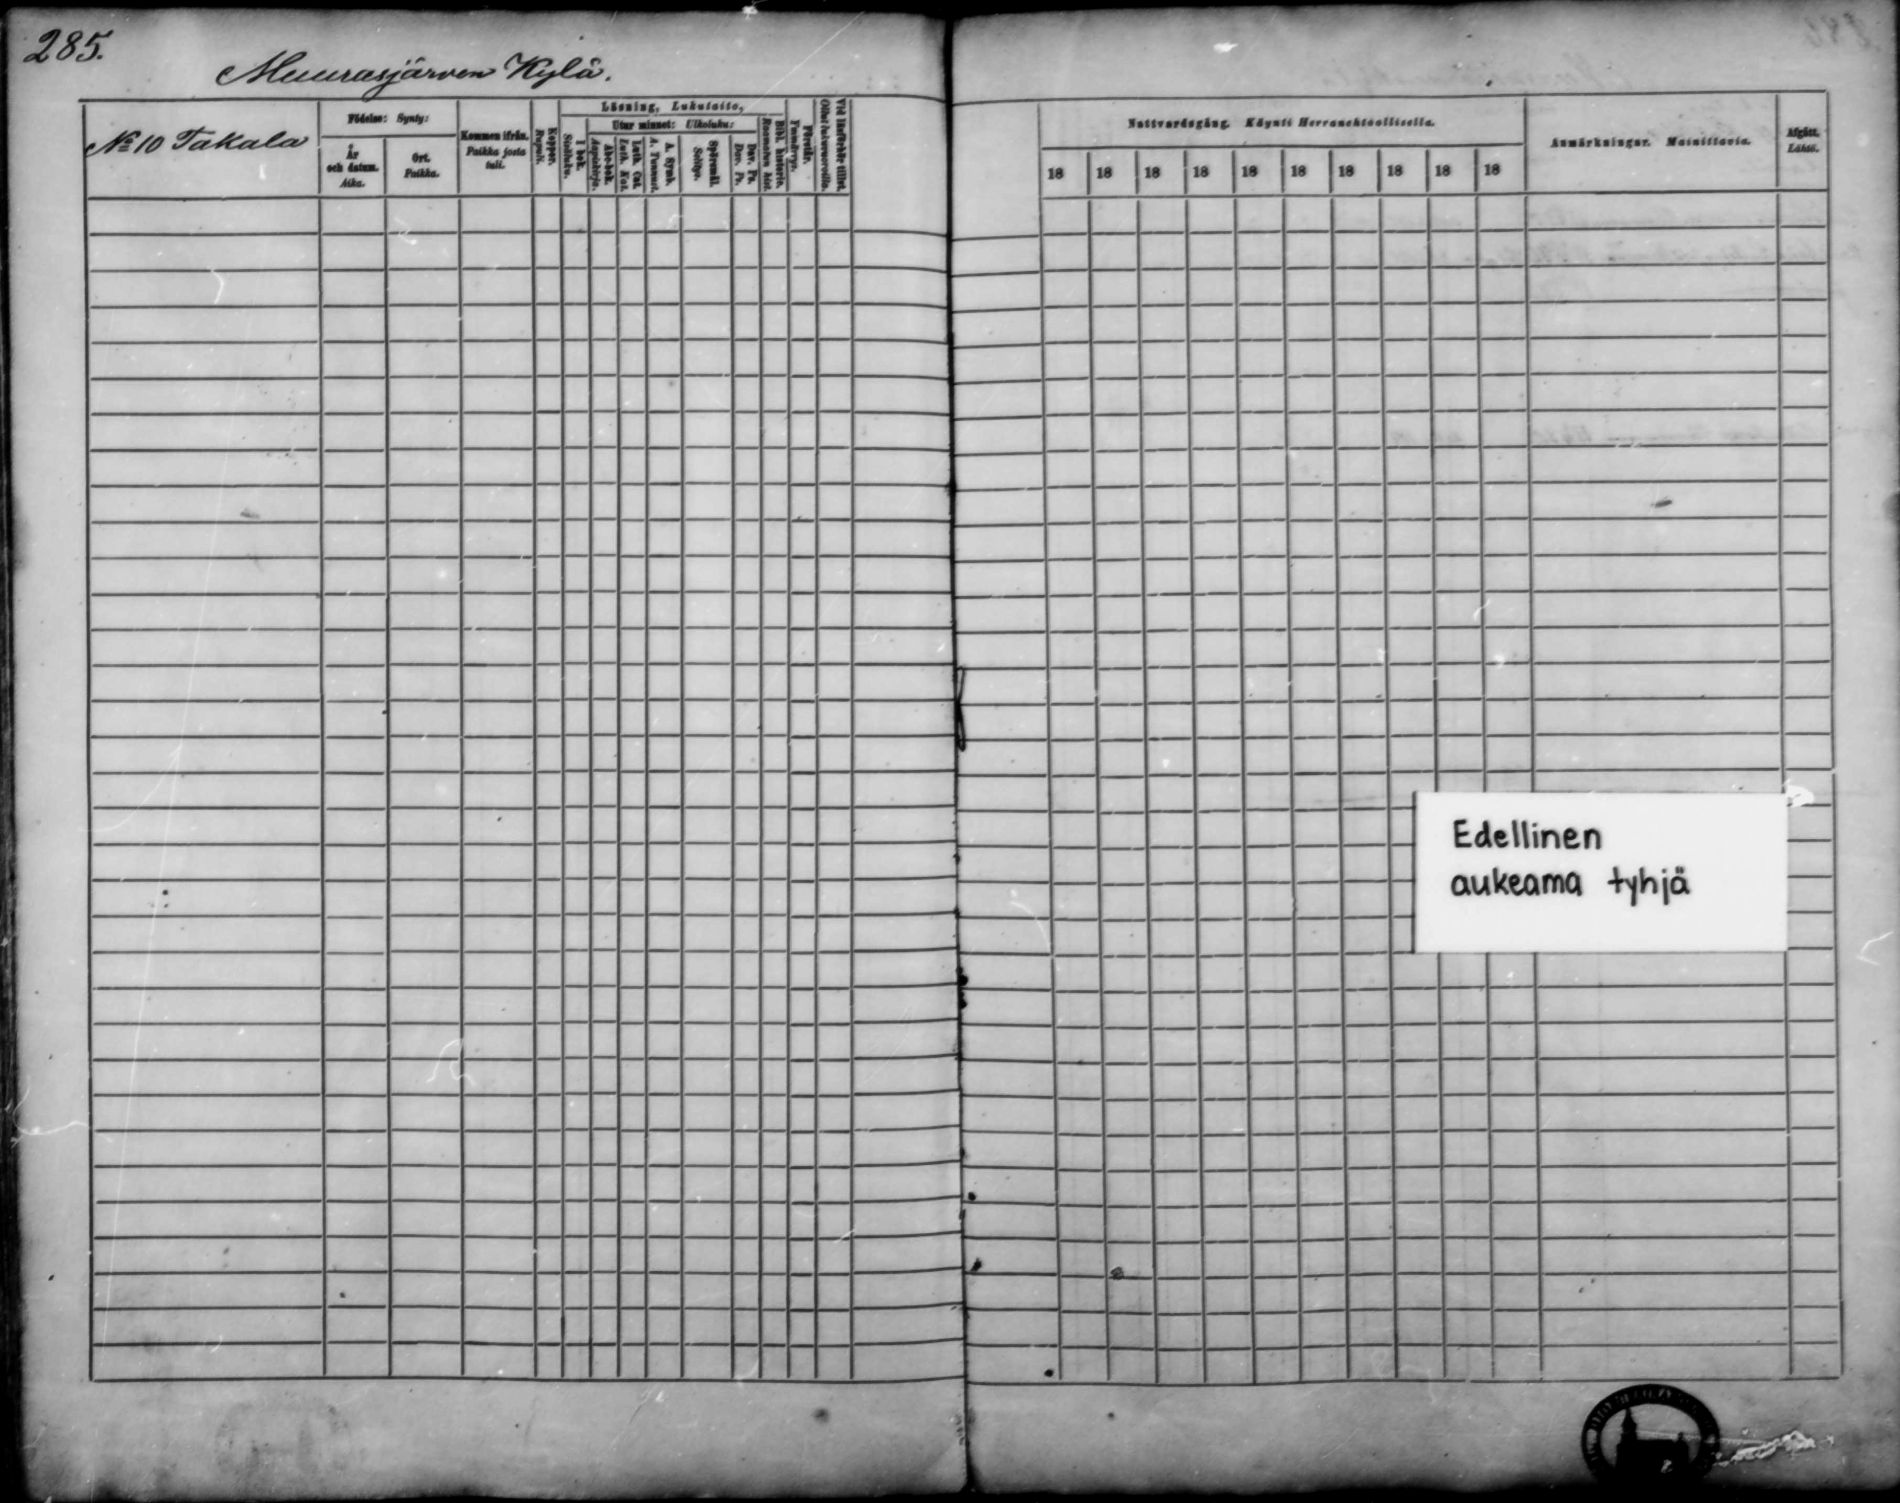 285.
Muurasjärven Kylä.
№ 10 Takala
Födelse: Synty:
År och datum. Aika.
Ort. Paikka.
Kommen ifrån. Paikka josta tuli.
Koppor. Rupuli.
Läsning, Lukutaito,
I bok. Sisäluku.
Utur minnet: Ulkoluku:
Abc-bok. Aapiskirja.
Luth. Cat. Luth. Kat.
A. Symb. A. Tunnust.
Spörsmål. Selitys.
Dav. Ps. Dav. Ps.
Bibl. historie. Raamatun hist.
Förstår. Ymmärrys.
Vid läsförhör tillst. Ollut lukuvuoroilla.
Nattvardsgång. Käynti Herranehtoollisella.
18 18 18 18 18 18 18 18 18 18
Anmärkningar. Mainittavia.
Afgått. Lähtö.
Edellinen
aukeama tyhjä